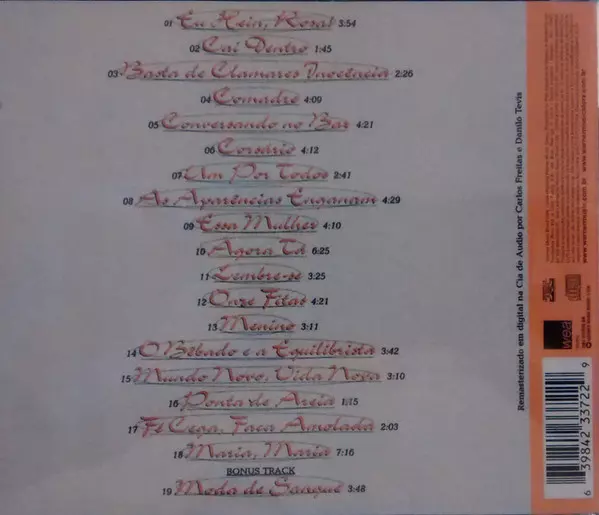 01 Eu Hein, Rosa! 3:54
02 Cai Dentro 1:45
03 Basta de Clamares Inocência 2:26
04 Comadre 4:09
05 Conversando no Bar 4:21
06 Corsário 4:12
07 Um Por Todos 2:41
08 As Aparências Enganam 4:29
09 Essa Mulher 4:10
10 Agora Tá 6:25
11 Lembre-se 3:25
12 Onze Fitas 4:21
13 Menino 3:11
14 O Bêbado e a Equilibrista 3:42
15 Mundo Novo, Vida Nova 3:10
16 Ponta de Areia 1:15
17 Fé Cega, Faca Amolada 2:03
18 Maria, Maria 7:16
BONUS TRACK
19 Moda de Sangue 3:48
Remasterizado em digital na Cia de Audio por Carlos Freitas e Danilo Tevis
wea
6 39842 33722 9